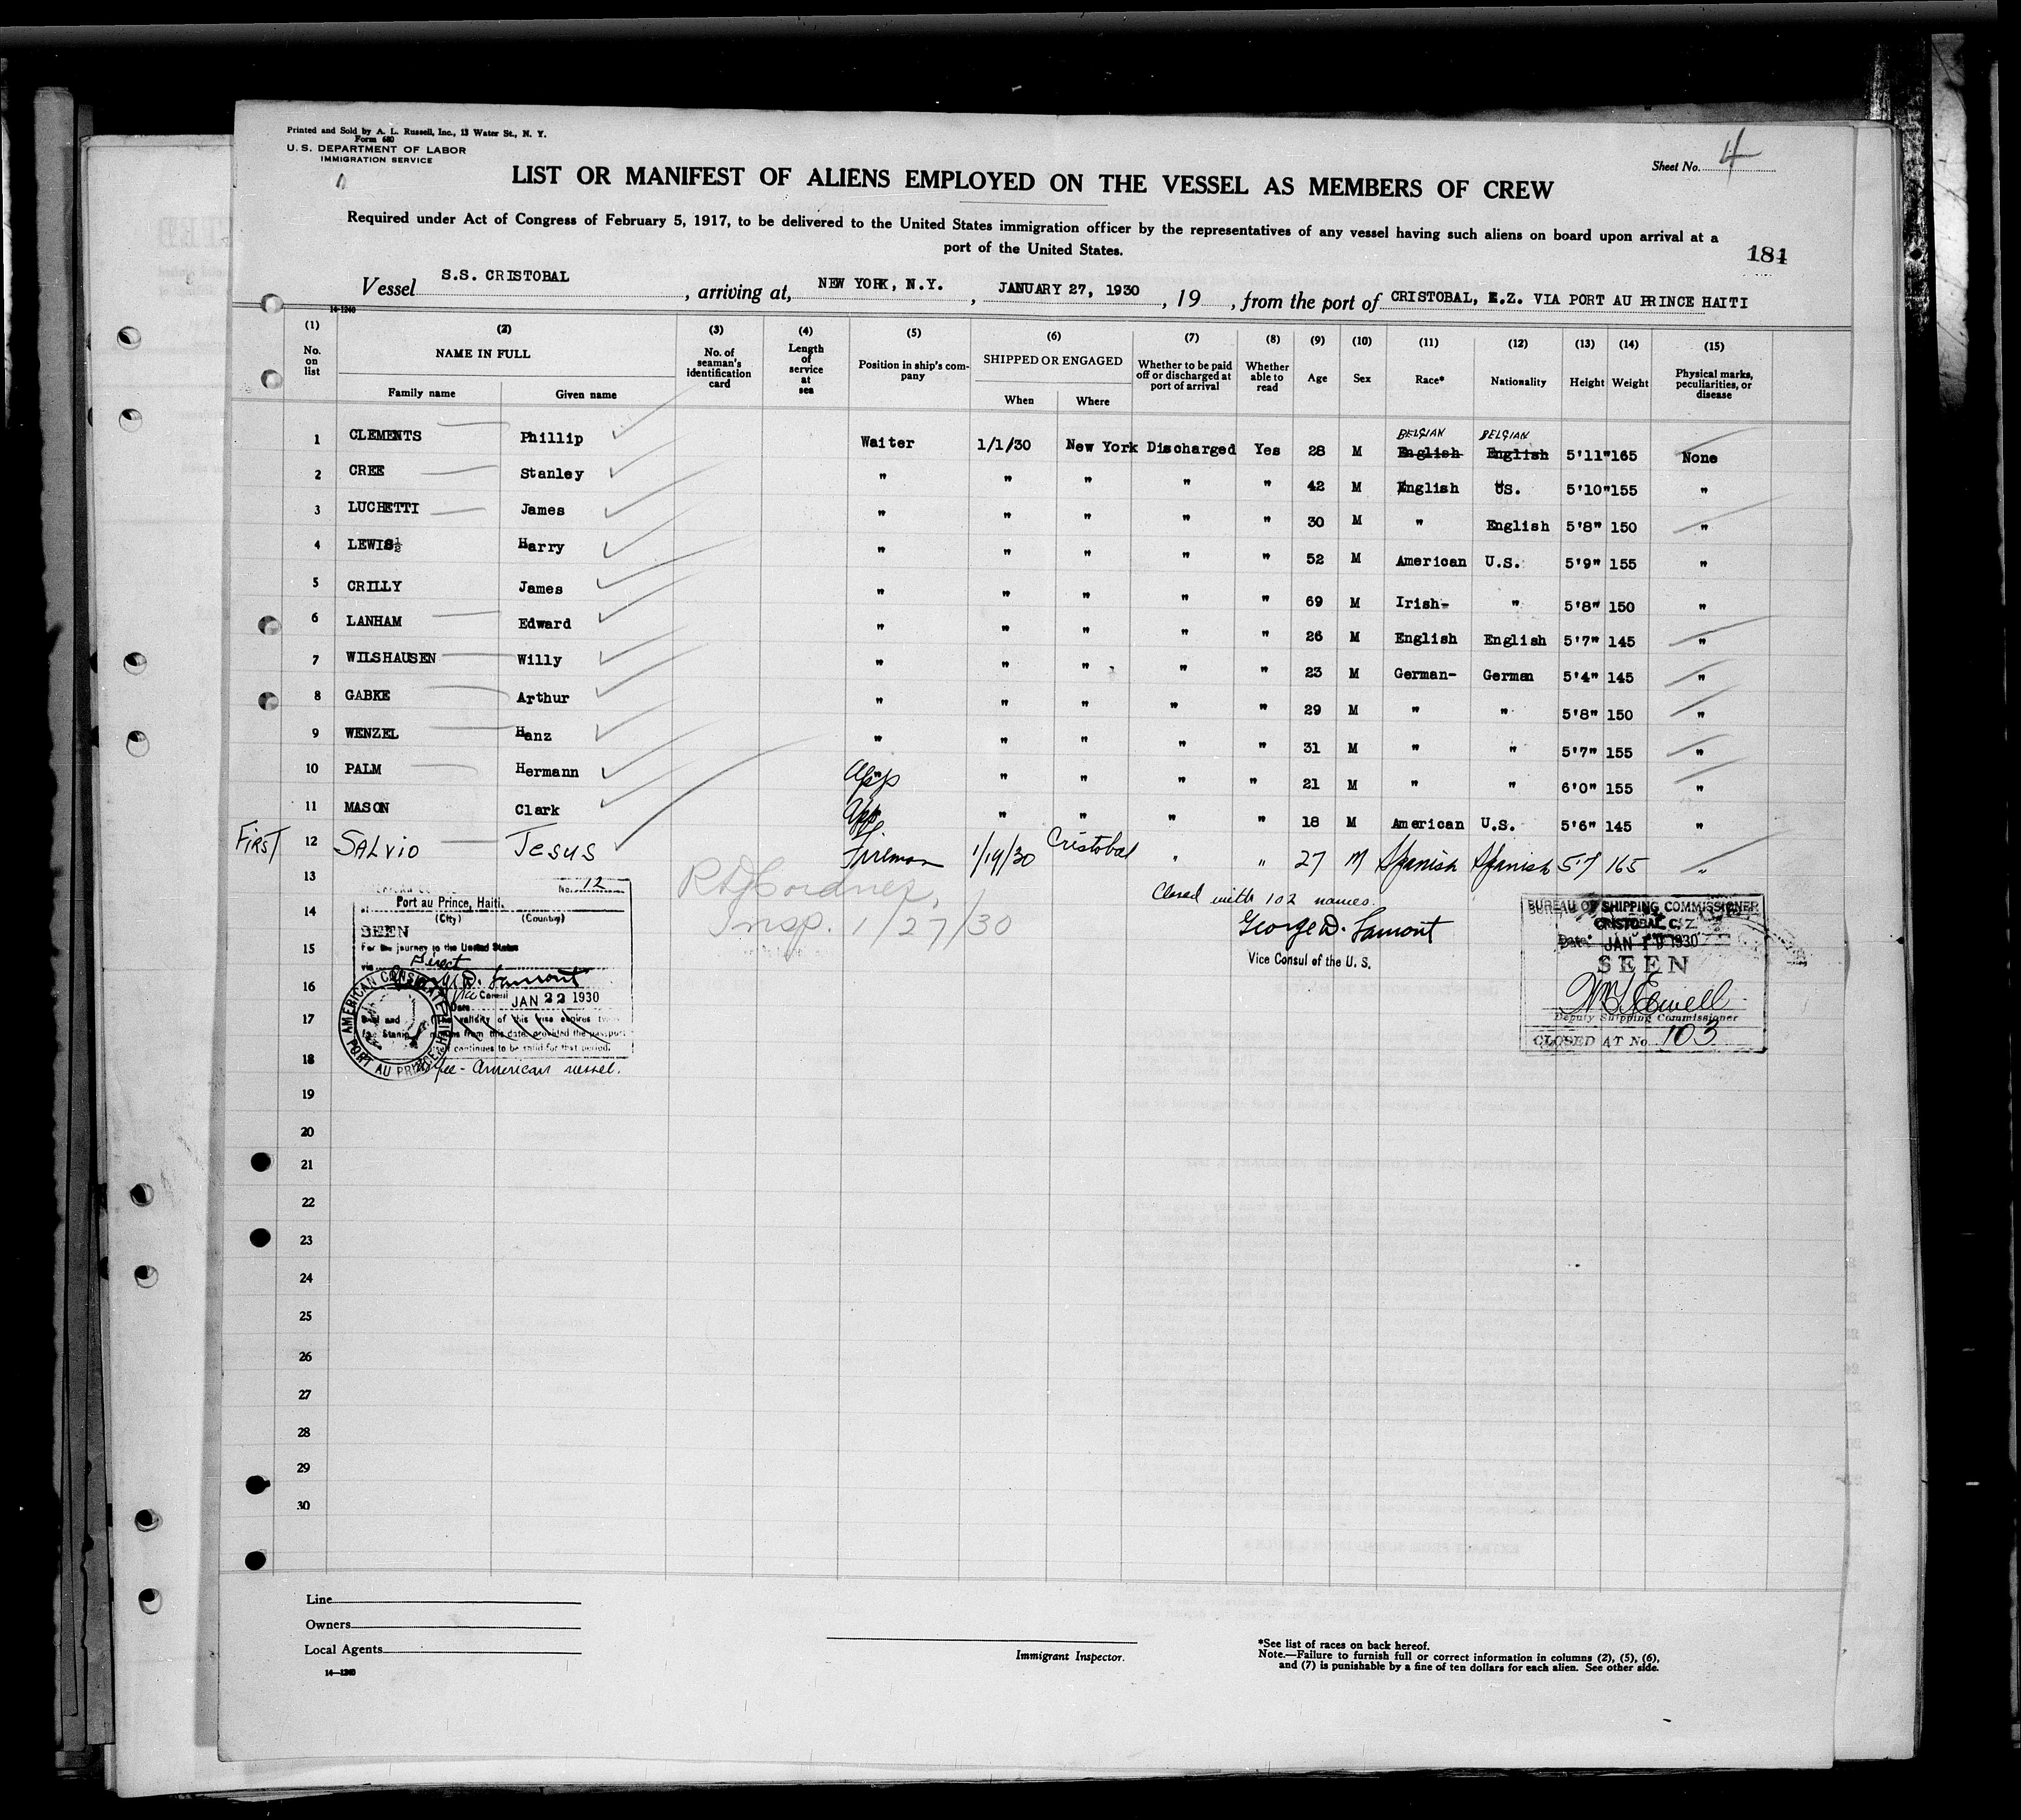 Printed and Sold by A. L. Russell, Inc., 13 Water St., N. Y.
Form 680
U. S. DEPARTMENT OF LABOR
IMMIGRATION SERVICE
Sheet No. 4
LIST OR MANIFEST OF ALIENS EMPLOYED ON THE VESSEL AS MEMBERS OF CREW
Required under Act of Congress of February 5, 1917, to be delivered to the United States immigration officer by the representatives of any vessel having such aliens on board upon arrival at a
port of the United States.
184
Vessel S.S. CRISTOBAL, arriving at, NEW YORK, N.Y., JANUARY 27, 1930, 19 , from the port of CRISTOBAL, Z. VIA PORT AU PRINCE HAITI
14-1240
(1) (2) (3) (4) (5) (6) (7) (8) (9) (10) (11) (12) (13) (14) (15)
No. on list NAME IN FULL Family name Given name No. of seaman's identification card Length of service at sea Position in ship's company SHIPPED OR ENGAGED When Where Whether to be paid off or discharged at port of arrival Whether able to read Age Sex Race* Nationality Height Weight Physical marks, peculiarities, or disease
BELGIAN BELGIAN
1 CLEMENTS Phillip Waiter 1/1/30 New York Discharged Yes 28 M English English 5'11" 165 None
2 CREE Stanley " " " " " 42 M English US. 5'10" 155 "
3 LUCHETTI James " " " " " 30 M " English 5'8" 150 "
4 LEWIS½ Harry " " " " " 52 M American U.S. 5'9" 155 "
5 CRILLY James " " " " " 69 M Irish- " 5'8" 150 "
6 LANHAM Edward " " " " " 26 M English English 5'7" 145 "
7 WILSHAUSEN Willy " " " " " 23 M German- German 5'4" 145 "
8 GABKE Arthur " " " " " 29 M " " 5'8" 150 "
9 WENZEL Hanz " " " " " 31 M " " 5'7" 155 "
10 PALM Hermann App " " " " 21 M " " 6'0" 155 "
11 MASON Clark App " " " " 18 M American U.S. 5'6" 145 "
FIRST 12 SALVIO Jesus Fireman 1/19/30 Cristobal " " 27 M Spanish Spanish 5'7 165 "
13
14
15
16
17
18
19
20
21
22
23
24
25
26
27
28
29
30
No. 12
Port au Prince, Haiti.
(City) (Country)
SEEN
For the journey to the United States
via Direct
George D. Lamont
Vice Consul
Date JAN 22 1930
The validity of this visa expires
months from this date, provided the passport
continues to be valid for that period.
AMERICAN CONSULATE PORT AU PRINCE HAITI
fee - American vessel.
Insp. 1/27/30
Closed with 102 names.
George D. Lamont
Vice Consul of the U. S.
BUREAU OF SHIPPING COMMISSIONER
CRISTOBAL C. Z.
Date JAN 19 1930
SEEN
Deputy Shipping Commissioner
CLOSED AT No. 103
Line
Owners
Local Agents
14-1240
Immigrant Inspector.
*See list of races on back hereof.
Note.—Failure to furnish full or correct information in columns (2), (5), (6),
and (7) is punishable by a fine of ten dollars for each alien. See other side.